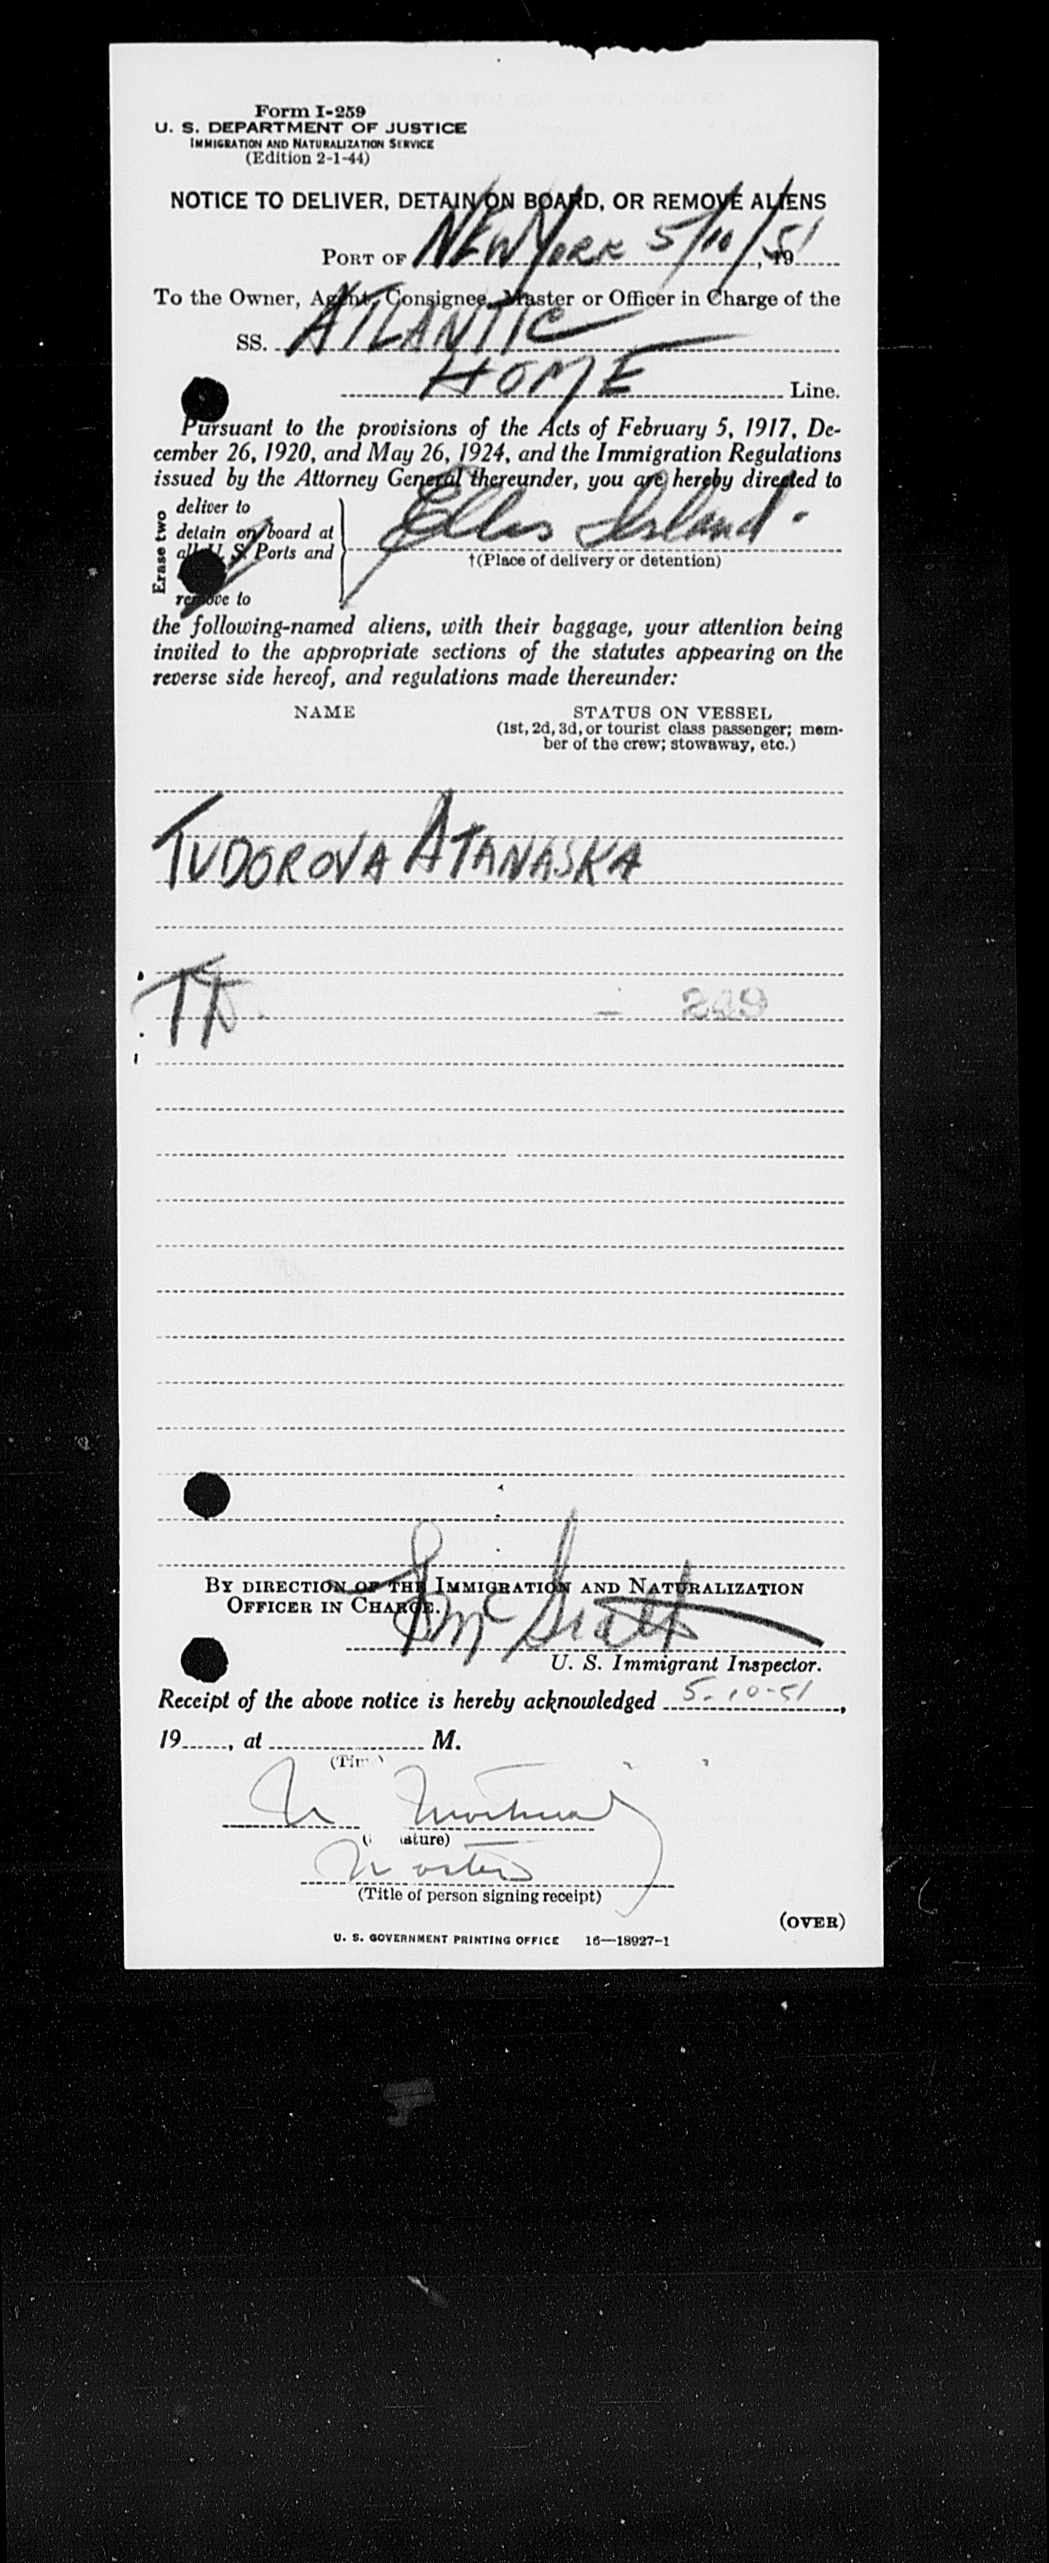 Form I-259
U. S. DEPARTMENT OF JUSTICE
IMMIGRATION AND NATURALIZATION SERVICE
(Edition 2-1-44)
NOTICE TO DELIVER, DETAIN ON BOARD, OR REMOVE ALIENS
PORT OF NEW YORK 5/10/51, 19
To the Owner, Agent, Consignee, Master or Officer in Charge of the
SS. ATLANTIC
HOME Line.
Pursuant to the provisions of the Acts of February 5, 1917, De-
cember 26, 1920, and May 26, 1924, and the Immigration Regulations
issued by the Attorney General thereunder, you are hereby directed to
Erase two
deliver to
detain on board at
all U. S. Ports and
remove to
Ellis Island.
†(Place of delivery or detention)
the following-named aliens, with their baggage, your attention being
invited to the appropriate sections of the statutes appearing on the
reverse side hereof, and regulations made thereunder:
NAME STATUS ON VESSEL
(1st, 2d, 3d, or tourist class passenger; mem-
ber of the crew; stowaway, etc.)
TUDOROVA ATANASKA
249
BY DIRECTION OF THE IMMIGRATION AND NATURALIZATION
OFFICER IN CHARGE.
U. S. Immigrant Inspector.
Receipt of the above notice is hereby acknowledged 5-10-51,
19, at M.
Master
(Title of person signing receipt)
(OVER)
U. S. GOVERNMENT PRINTING OFFICE 16—18927-1